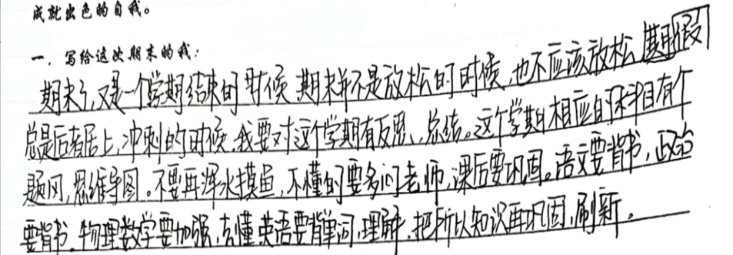 成就出色的自我。
一、写给这次期末的我:
期末了,又是一个学期结束的时候 期末并不是放松的时候,也不应该放松 期假
总是后者居上,冲刺的时候,我要对这个学期有反思、总结。这个学期相应的科目有个
题网,思维导图。不要再浑水摸鱼,不懂的要多问老师,课后要巩固。语文要背书,政治
要背书,物理数学要加强,去懂英语要背单词,理解,把所以知识再巩固,刷新。